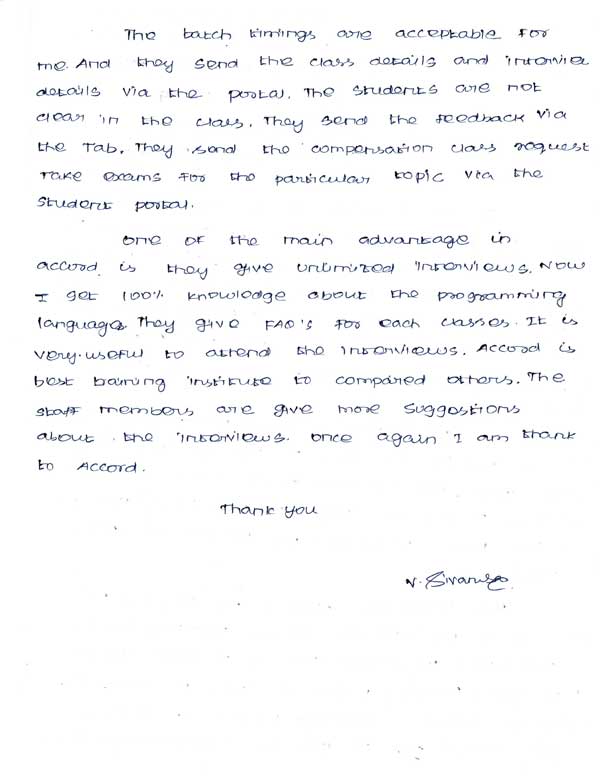 The batch timings are acceptable for
me. And they send the class details and interview
details via the portal. The students are not
clear in the class. They send the feedback via
the Tab. They send the compensation class request
Take exams for the particular topic via the
student portal.
One of the main advantage in
accord is they give unlimited interviews. Now
I get 100% knowledge about the programming
language. They give FAQ's for each classes. It is
very useful to attend the interviews. Accord is
best training institute to compared others. The
staff members are give more suggestions
about the interviews. once again I am thank
to Accord.
Thank you